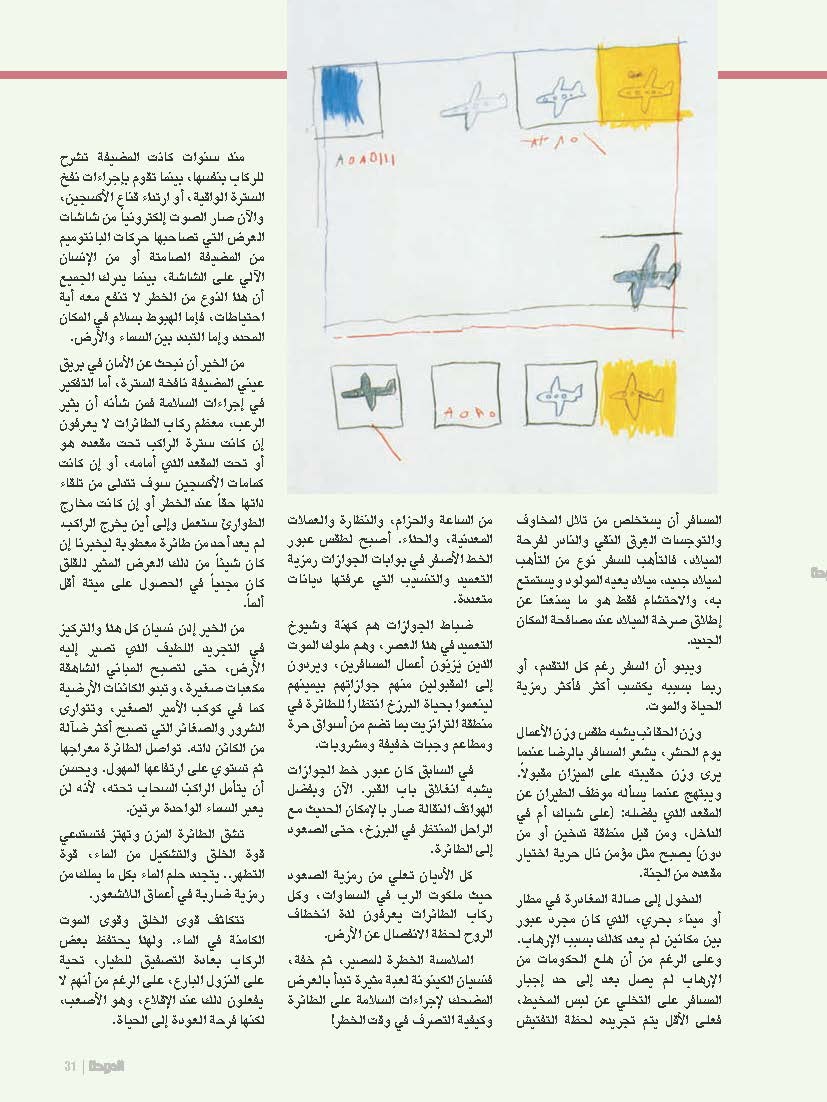 المسافر أن يستخلص من تلال المخاوف
والتوجسات العِرق النقي والنادر لفرحة
الميلاد، فالتأهب للسفر نوع من التأهب
لميلاد جديد، ميلاد يعيه المولود ويستمتع
به، والاحتشام فقط هو ما يمنعنا عن
إطلاق صرخة الميلاد عند مصافحة المكان
الجديد.
ويبدو أن السفر رغم كل التقدم، أو
ربما بسببه يكتسب أكثر فأكثر رمزية
الحياة والموت.
وزن الحقائب يشبه طقس وزن الأعمال
يوم الحشر، يشعر المسافر بالرضا عندما
يرى وزن حقيبته على الميزان مقبولاً.
ويبتهج عندما يسأله موظف الطيران عن
المقعد الذي يفضله: (على شباك أم في
الداخل، ومن قبل منطقة تدخين أو من
دون) يصبح مثل مؤمن نال حرية اختيار
مقعده من الجنة.
الدخول إلى صالة المغادرة في مطار
أو ميناء بحري، الذي كان مجرد عبور
بين مكانين لم يعد كذلك بسبب الإرهاب.
وعلى الرغم من أن هلع الحكومات من
الإرهاب لم يصل بعد إلى حد إجبار
المسافر على التخلي عن لبس المخيط،
فعلى الأقل يتم تجريده لحظة التفتيش
من الساعة والحزام، والنظارة والعملات
المعدنية، والحذاء. أصبح لطقس عبور
الخط الأصفر في بوابات الجوازات رمزية
التعميد والتنسيب التي عرفتها ديانات
متعددة.
ضباط الجوازات هم كهنة وشيوخ
التعميد في هذا العصر، وهم ملوك الموت
الذين يَزِنون أعمال المسافرين، ويردون
إلى المقبولين منهم جوازاتهم بيمينهم
لينعموا بحياة البرزخ انتظاراً للطائرة في
منطقة الترانزيت بما تضم من أسواق حرة
ومطاعم وجبات خفيفة ومشروبات.
في السابق كان عبور خط الجوازات
يشبه انغلاق باب القبر. الآن وبفضل
الهواتف النقالة صار بالإمكان الحديث مع
الراحل المنتظر في البرزخ، حتى الصعود
إلى الطائرة.
كل الأديان تعلي من رمزية الصعود
حيث ملكوت الرب في السماوات، وكل
ركاب الطائرات يعرفون لذة انخطاف
الروح لحظة الانفصال عن الأرض.
الملامسة الخطرة للمصير، ثم خفة،
فنسيان الكينونة لعبة مثيرة تبدأ بالعرض
المضحك لإجراءات السلامة على الطائرة
وكيفية التصرف في وقت الخطر!
منذ سنوات كانت المضيفة تشرح
للركاب بنفسها، بينما تقوم بإجراءات نفخ
السترة الواقية، أو ارتداء قناع الأكسجين،
والآن صار الصوت إلكترونياً من شاشات
العرض التي تصاحبها حركات البانتوميم
من المضيفة الصامتة أو من الإنسان
الآلي على الشاشة، بينما يدرك الجميع
أن هذا النوع من الخطر لا تنفع معه أية
احتياطات، فإما الهبوط بسلام في المكان
المحدد وإما التبدد بين السماء والأرض.
من الخير أن نبحث عن الأمان في بريق
عيني المضيفة نافخة السترة، أما التفكير
في إجراءات السلامة فمن شأنه أن يثير
الرعب، معظم ركاب الطائرات لا يعرفون
إن كانت سترة الراكب تحت مقعده هو
أو تحت المقعد الذي أمامه، أو إن كانت
كمامات الأكسجين سوف تتدلى من تلقاء
ذاتها حقاً عند الخطر أو إن كانت مخارج
الطوارئ ستعمل وإلى أين يخرج الراكب.
لم يعد أحد من طائرة معطوبة ليخبرنا إن
كان شيئاً من ذلك العرض المثير للقلق
كان مجدياً في الحصول على ميتة أقل
ألماً.
من الخير إذن نسيان كل هذا والتركيز
في التجريد اللطيف الذي تصير إليه
الأرض، حتى لتصبح المباني الشاهقة
مكعبات صغيرة، وتبدو الكائنات الأرضية
كما في كوكب الأمير الصغير، وتتوارى
الشرور والصغائر التي تصبح أكثر ضآلة
من الكائن ذاته. تواصل الطائرة معراجها
ثم تستوي على ارتفاعها المهول. ويحسن
أن يتأمل الراكبُ السحاب تحته، لأنه لن
يعبر السماء الواحدة مرتين.
تشق الطائرة المزن وتهتز فتستدعي
قوة الخلق والتشكيل من الماء، قوة
التطهر.. يتجدد حلم الماء بكل ما يملك من
رمزية ضاربة في أعماق اللاشعور.
تتكاثف قوى الخلق وقوى الموت
الكامنة في الماء. ولهذا يحتفظ بعض
الركاب بعادة التصفيق للطيار، تحية
على النزول البارع، على الرغم من أنهم لا
يفعلون ذلك عند الإقلاع، وهو الأصعب،
لكنها فرحة العودة إلى الحياة.
الدوحة | 31